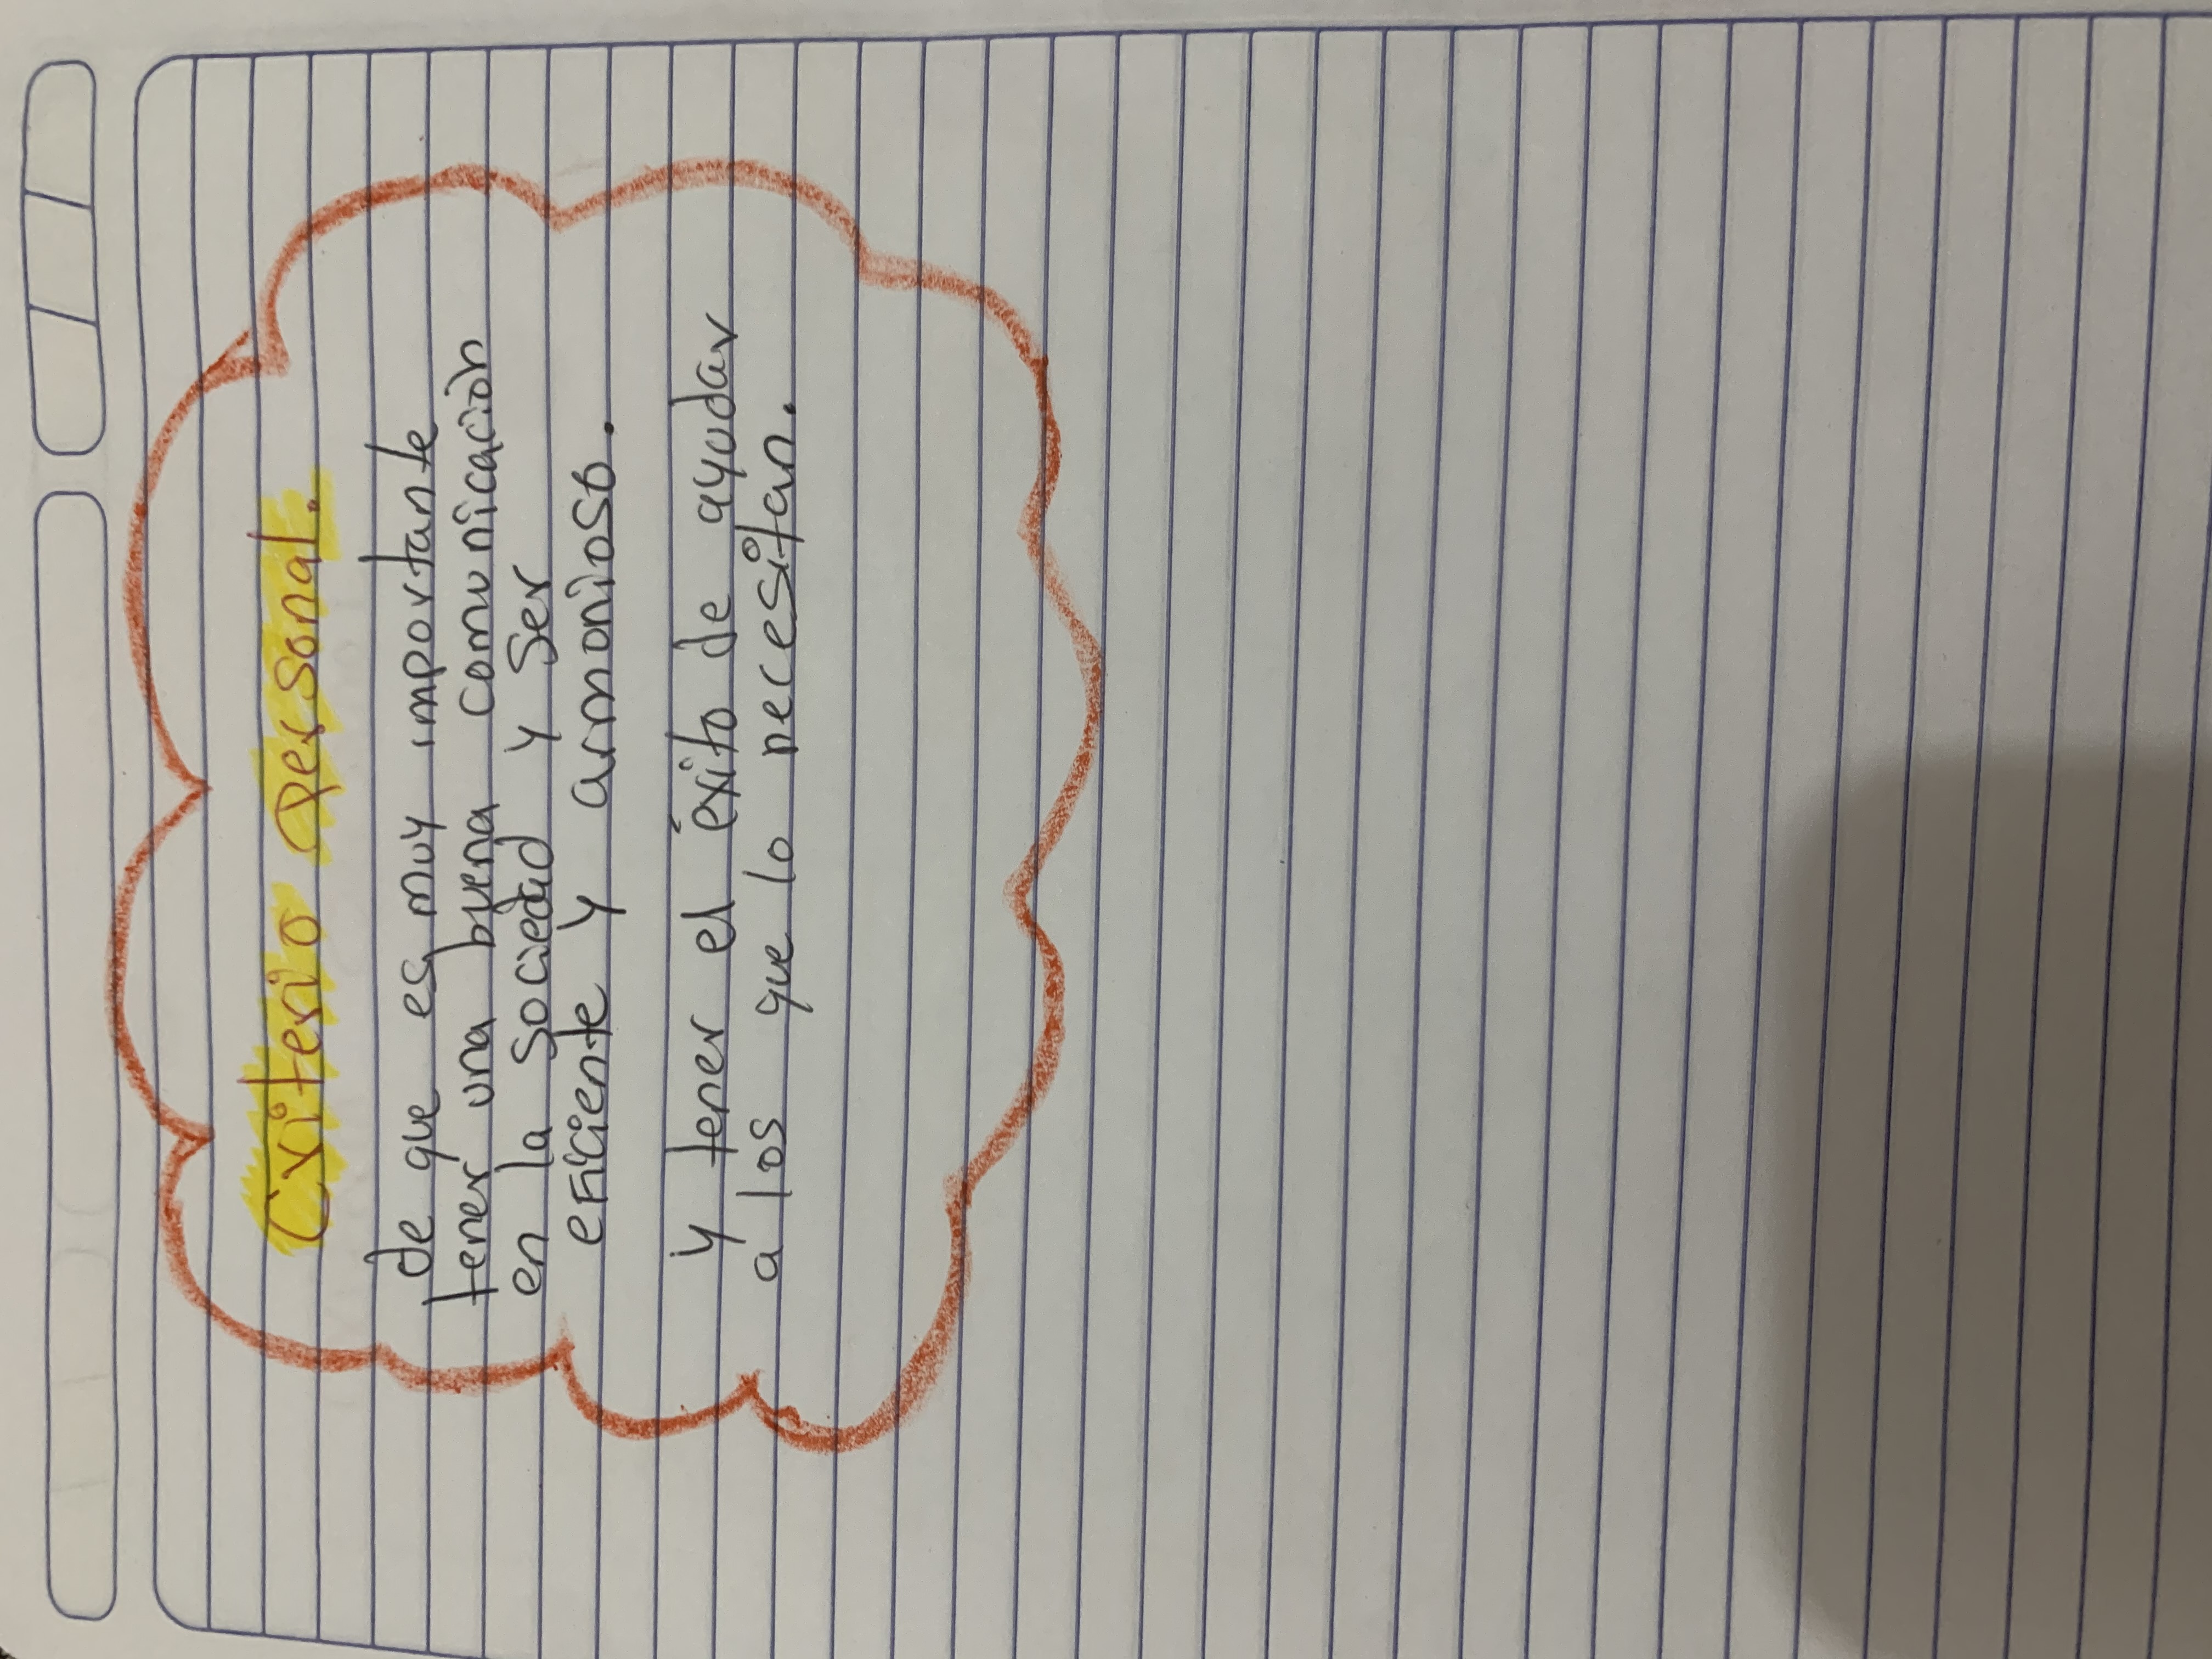 Criterio personal.
de que es muy importante
tener una buena comunicación
en la sociedad y ser
eficiente y armonioso.
y tener el éxito de ayudar
a los que lo necesitan.